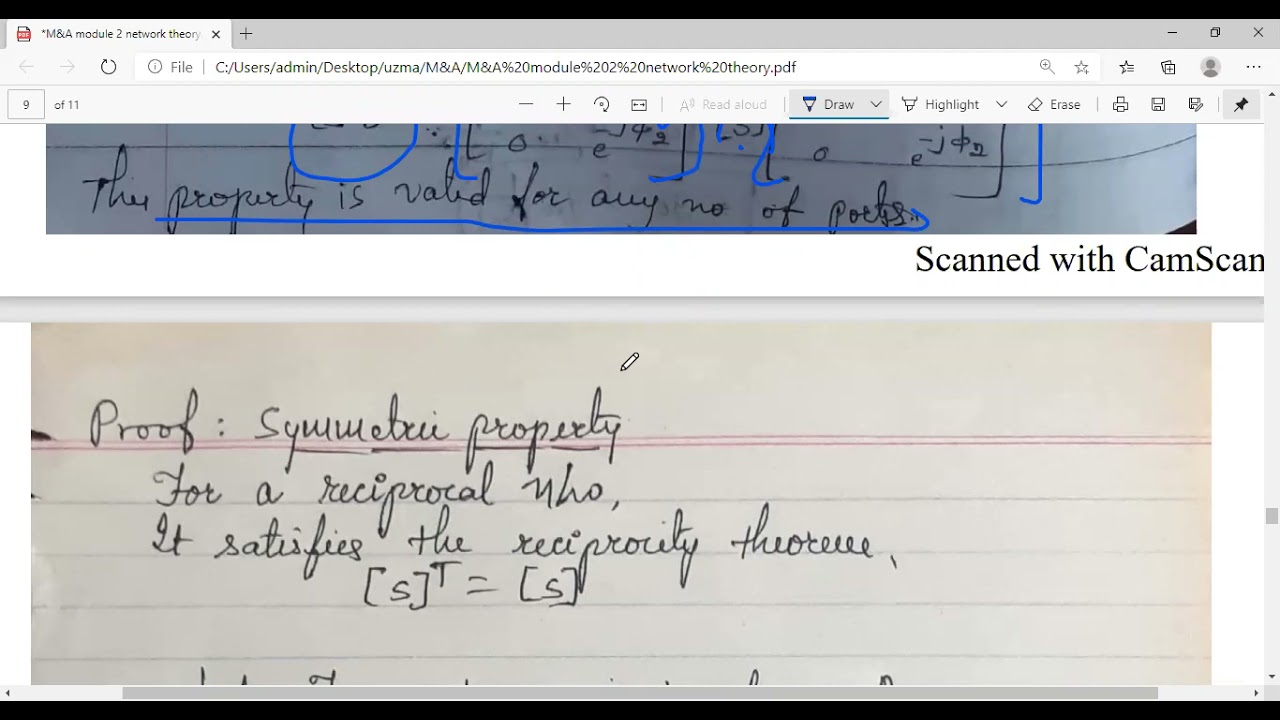 *M&A module 2 network theory.
File
C:/Users/admin/Desktop/uzma/M&A/M&A%20module%202%20network%20theory.pdf
9 of 11
Read aloud
Draw
Highlight
Erase
0 e^-jϕ2 [S] 0 e^-jϕ2
This property is valid for any no of ports.
Scanned with CamScan
Proof: Symmetric property
For a reciprocal
It satisfies the reciprocity theorem,
[S]^T = [S]